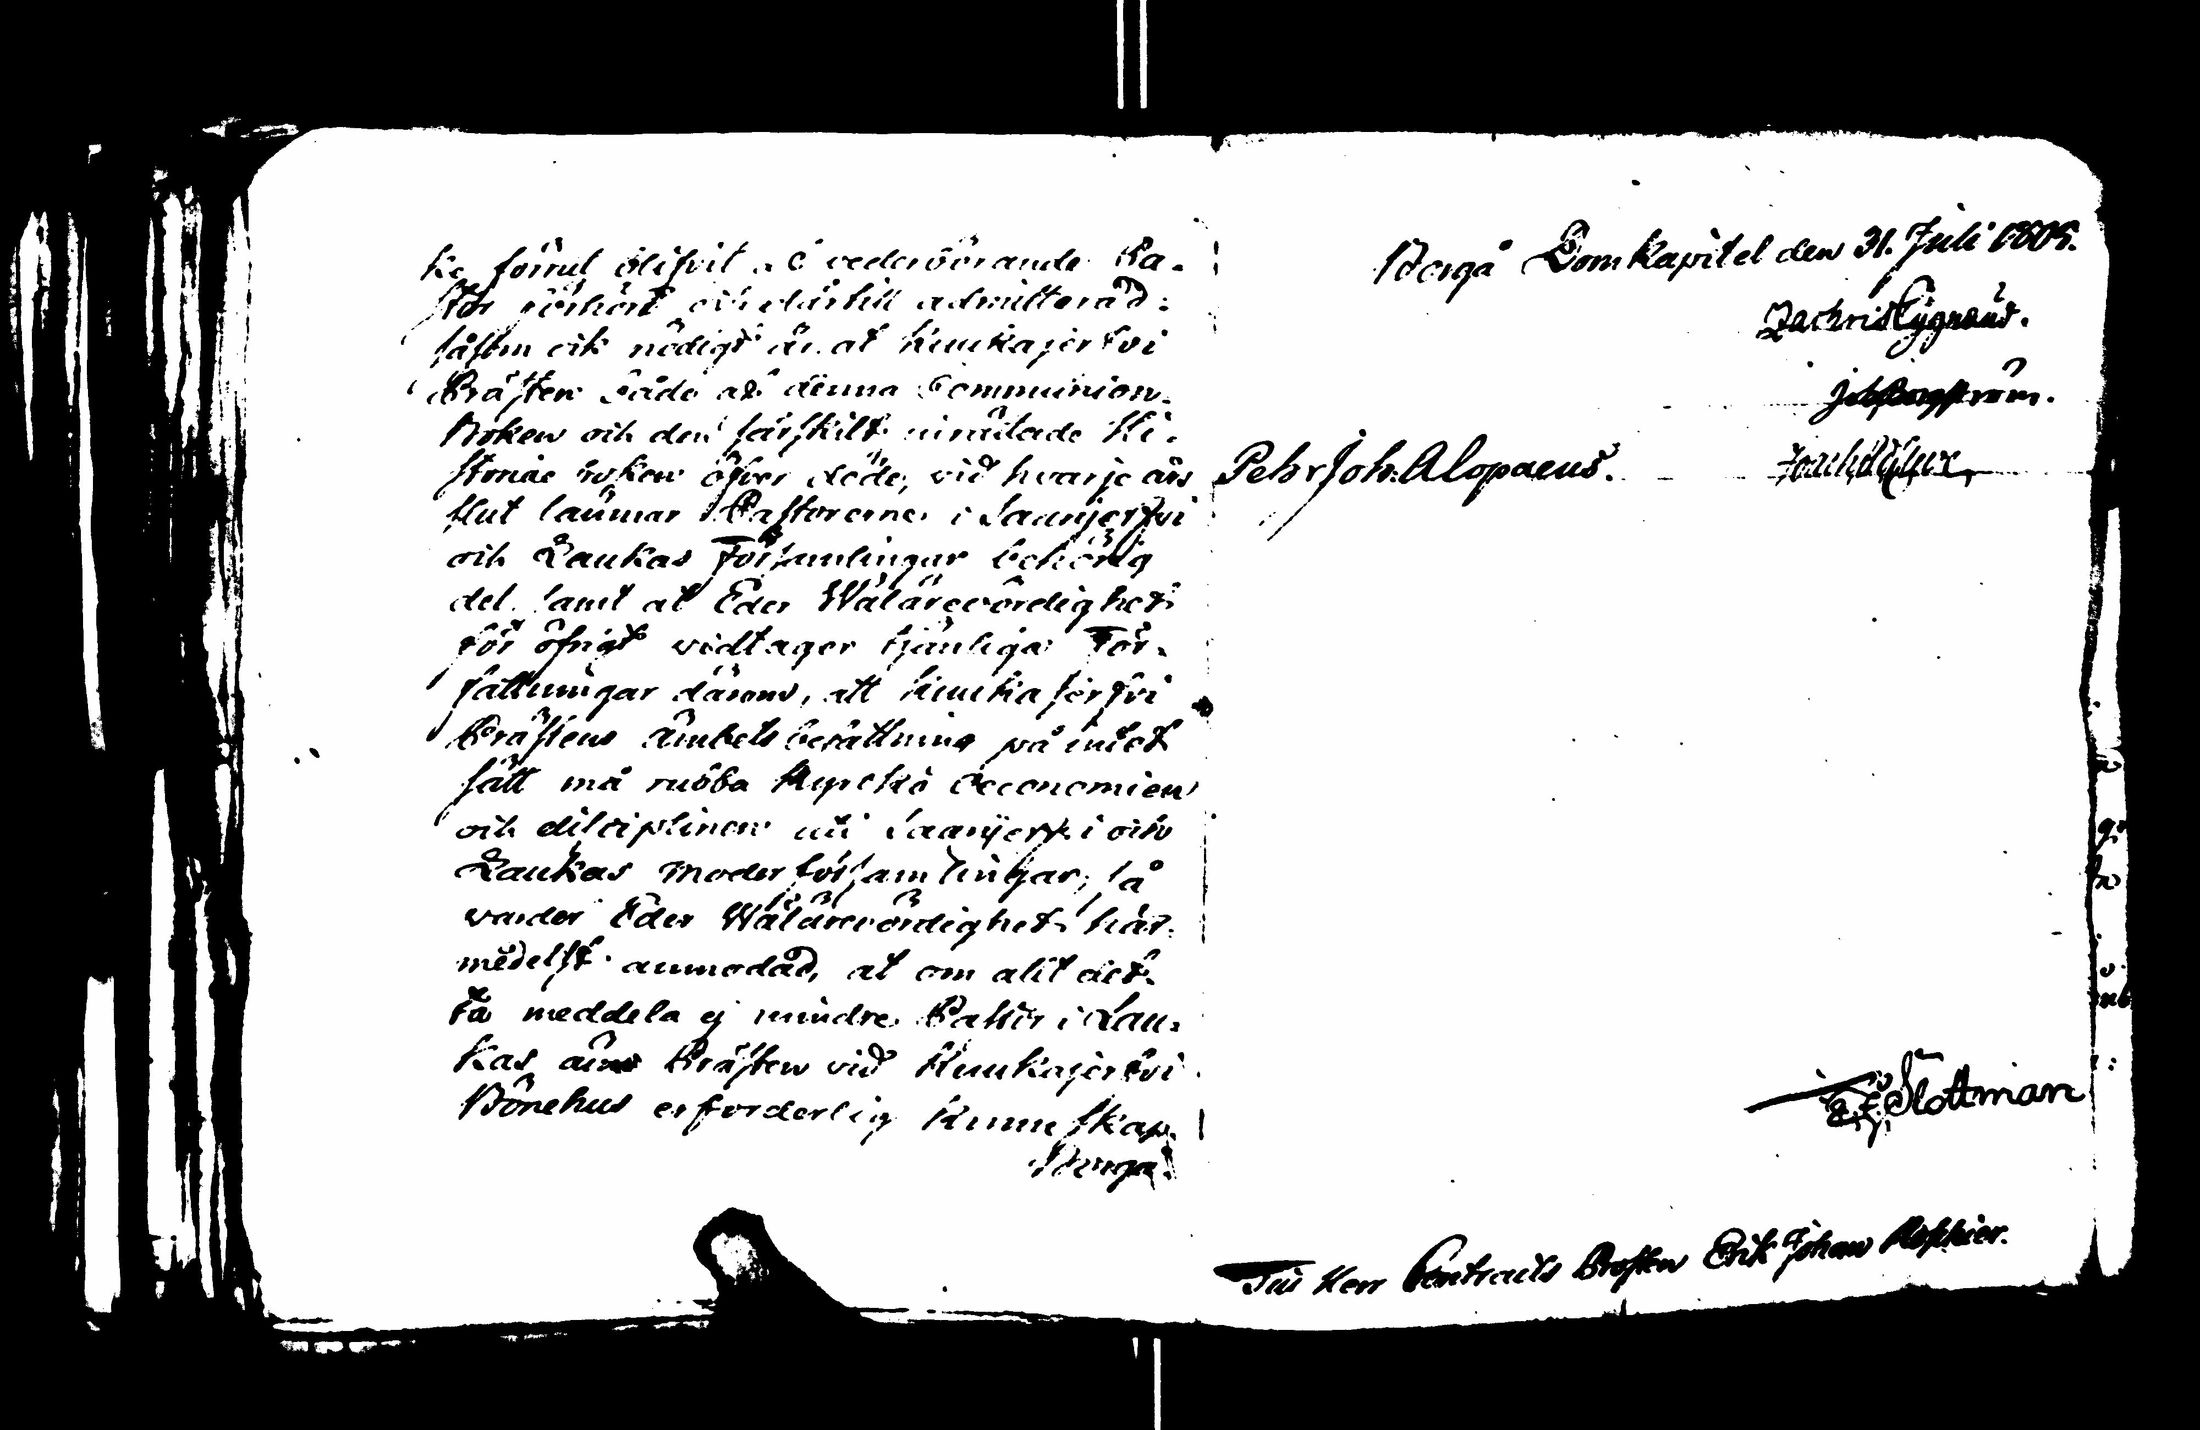 ke förut blifvit af vederbörande Pa-
stor förhört och därtill admitterad:
såsom ock nödigt är at Kuukajerfvi
Prästen både af denna Communion-
Boken och den särskilt inrättade Hi-
storiae boken öfver döde, vid hvarje års
slut lämnar Pastorerne i Saarijerfvi
och Laukas Församlingar behörig
del. samt at Eder Wälärevördighet
för öfrigt vidtager tjänliga För-
fattningar därom, att Kuukajerfvi
Prästens ämbets berättning på intet
sätt må rubba Kyrcko oeconomien
och disciplinen uti Saarijerfvi och
Laukas Moderförsamlingar; så
varder Eder Wälärevördighet här-
medelst anmodad, at om alt det-
ta meddela ej mindre Pastor i Lau-
kas än Prästen vid Kuukajerfvi
Bönehus erforderlig Kunnskap.
Borgå
Borgå Domkapitel den 31. Juli 1805.
Zachris Cygnæus.
Pehr Joh. Alopaeus.
Slottman
Till Herr Contracts Prosten Erik Johan